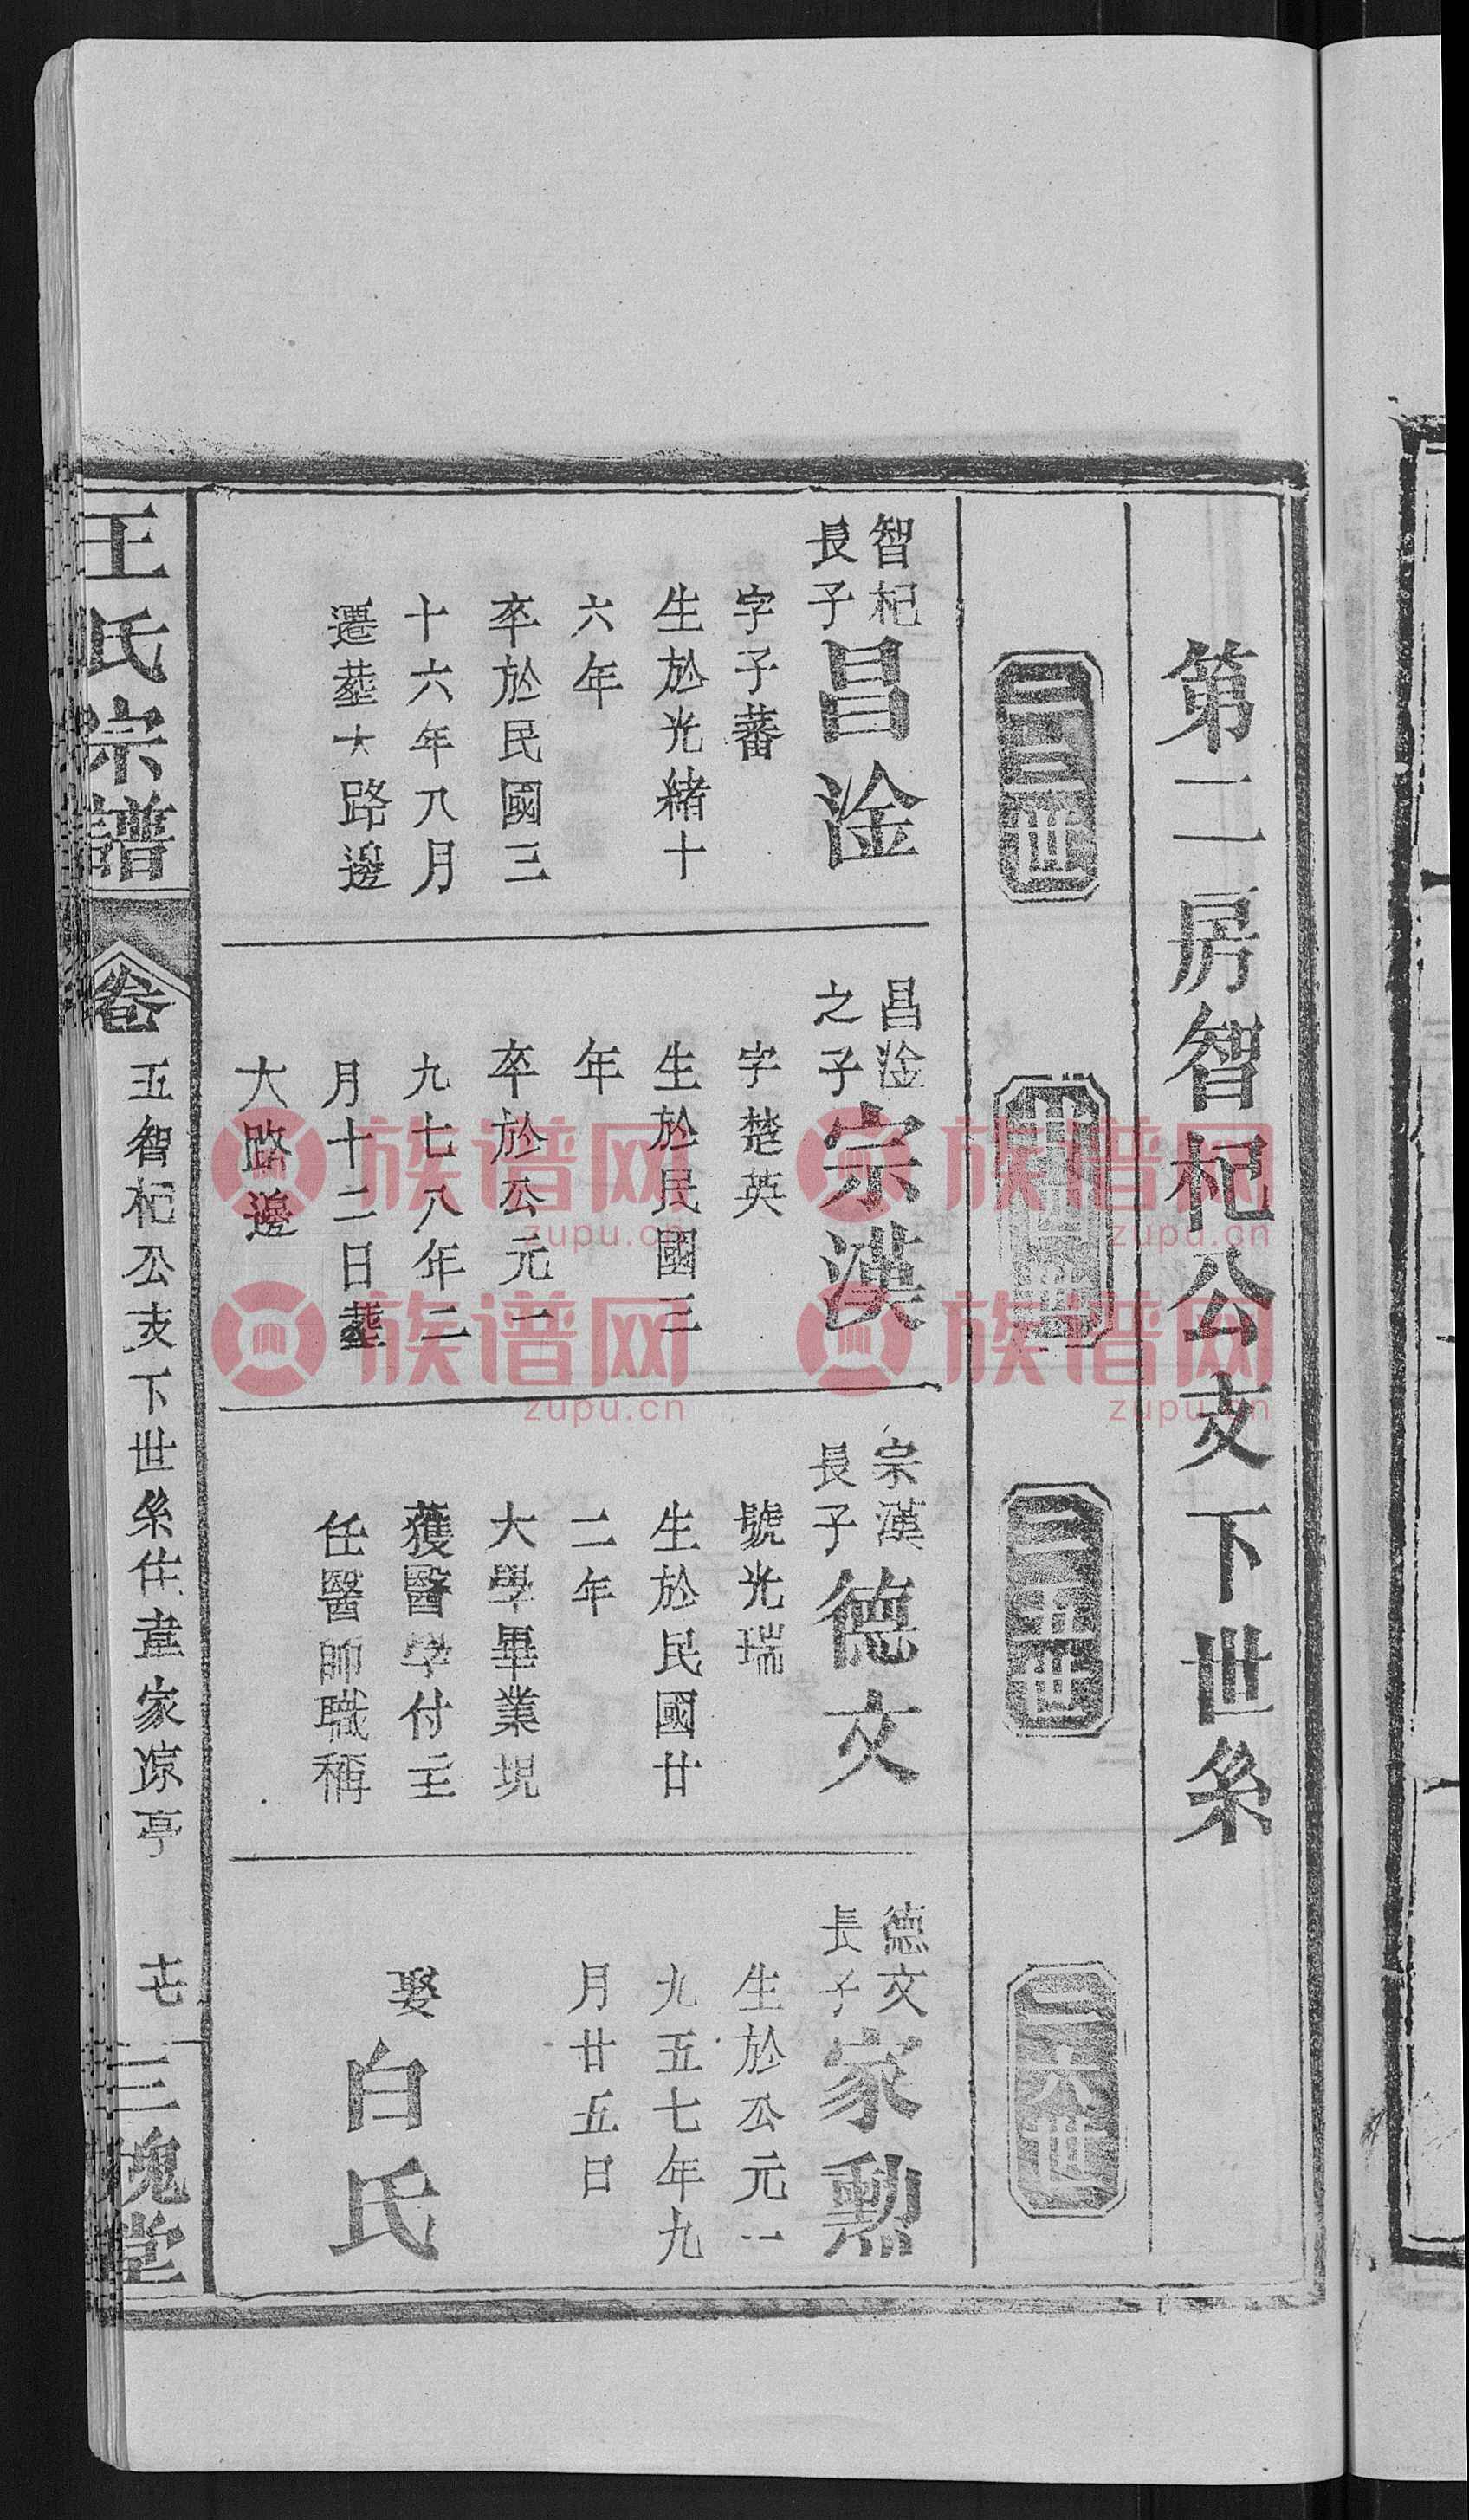 第二房智杞公支下世系
二三世
智杞
長子
昌淦
字子蕃
生於光緒十
六年
卒於民國三
十六年八月
遷塟大路邊
廿四世
昌淦
之子
宗漢
字楚英
生於民國三
年
卒於公元一
九七八年二
月十二日塟
大路邊
二五世
宗漢
長子
德文
號光瑞
生於民國廿
二年
大學畢業現
獲醫學付主
任醫師職稱
二六世
德文
長子
家勲
生於公元一
九五七年九
月廿五日
娶
白氏
王氏宗譜
卷
五智杞公支下世系住韋家凉亭
三槐堂
族谱网
zupu.cn
族谱网
zupu.cn
族谱网
zupu.cn
族谱网
zupu.cn